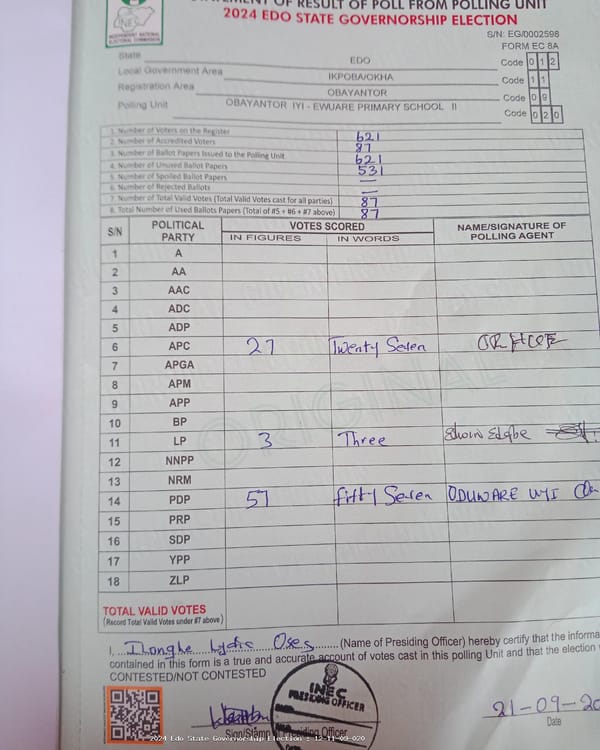 INEC
INDEPENDENT NATIONAL ELECTORAL COMMISSION
STATEMENT OF RESULT OF POLL FROM POLLING UNIT
2024 EDO STATE GOVERNORSHIP ELECTION
S/N: EG/0002598
FORM EC 8A
State EDO Code 0 1 2
Local Government Area IKPOBA/OKHA Code 1 1
Registration Area OBAYANTOR Code 0 9
Polling Unit OBAYANTOR IYI - EWUARE PRIMARY SCHOOL II Code 0 2 0
1. Number of Voters on the Register 621
2. Number of Accredited Voters 87
3. Number of Ballot Papers Issued to the Polling Unit 621
4. Number of Unused Ballot Papers 531
5. Number of Spoiled Ballot Papers —
6. Number of Rejected Ballots —
7. Number of Total Valid Votes (Total Valid Votes cast for all parties) 87
8. Total Number of Used Ballots Papers (Total of #5 + #6 + #7 above) 87
S/N POLITICAL PARTY VOTES SCORED NAME/SIGNATURE OF POLLING AGENT
IN FIGURES IN WORDS
1 A
2 AA
3 AAC
4 ADC
5 ADP
6 APC 27 Twenty Seven
7 APGA
8 APM
9 APP
10 BP
11 LP 3 Three
12 NNPP
13 NRM
14 PDP 57 fifty Seven ODUWARE
15 PRP
16 SDP
17 YPP
18 ZLP
TOTAL VALID VOTES
(Record Total Valid Votes under #7 above)
I, ... (Name of Presiding Officer) hereby certify that the informa
contained in this form is a true and accurate account of votes cast in this polling Unit and that the election
CONTESTED/NOT CONTESTED
INEC
PRESIDING OFFICER
21-09-20
Sign/Stamp Presiding Officer
Date
2024 Edo State Governorship Election : 12-11-09-020
ORIGINAL